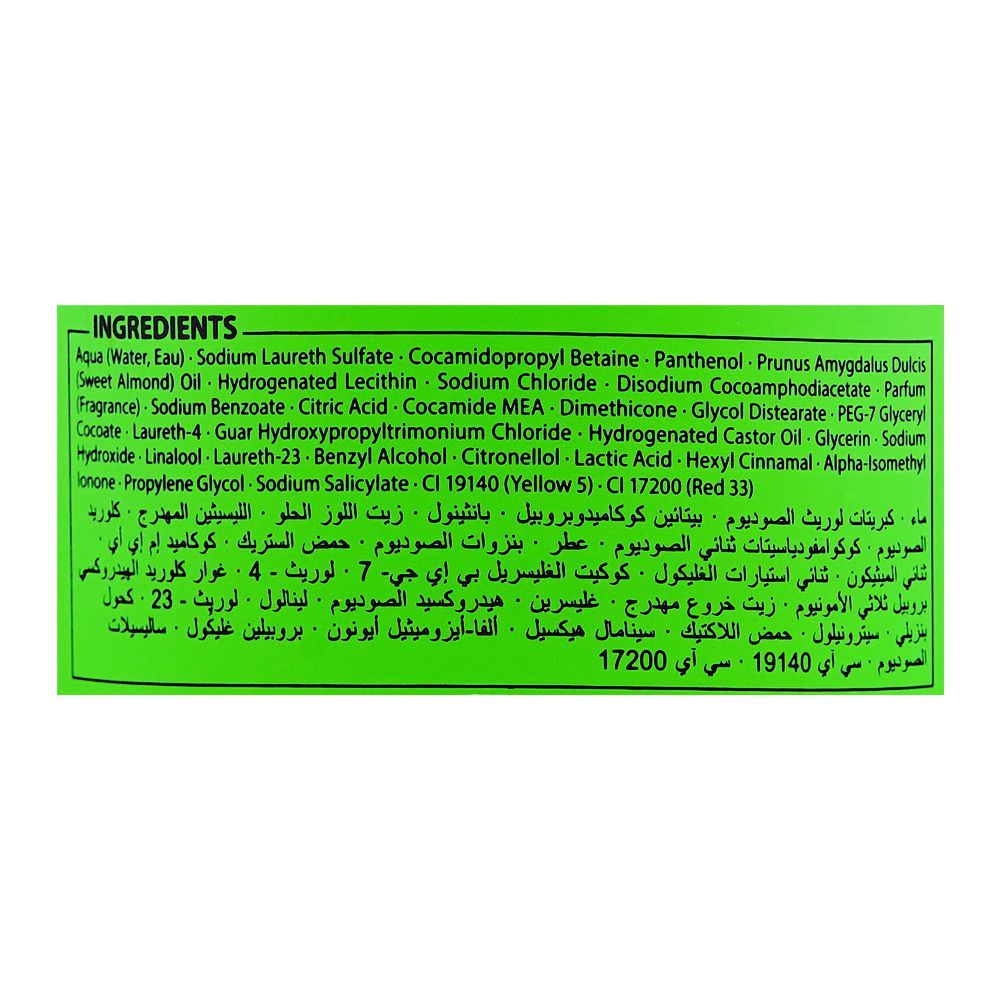 INGREDIENTS
Aqua (Water, Eau) · Sodium Laureth Sulfate · Cocamidopropyl Betaine · Panthenol · Prunus Amygdalus Dulcis
(Sweet Almond) Oil · Hydrogenated Lecithin · Sodium Chloride · Disodium Cocoamphodiacetate · Parfum
(Fragrance) · Sodium Benzoate · Citric Acid · Cocamide MEA · Dimethicone · Glycol Distearate · PEG-7 Glyceryl
Cocoate · Laureth-4 · Guar Hydroxypropyltrimonium Chloride · Hydrogenated Castor Oil · Glycerin · Sodium
Hydroxide · Linalool · Laureth-23 · Benzyl Alcohol · Citronellol · Lactic Acid · Hexyl Cinnamal · Alpha-Isomethyl
Ionone · Propylene Glycol · Sodium Salicylate · CI 19140 (Yellow 5) · CI 17200 (Red 33)
ماء · كبريتات لوريث الصوديوم · بيتائين كوكاميدوبروبيل · بانثينول · زيت اللوز الحلو · الليسيثين المهدرج · كلوريد
الصوديوم · كوكوامفودياسيتات ثنائي الصوديوم · عطر · بنزوات الصوديوم · حمض الستريك · كوكاميد إم إي أي ·
ثنائي الميثيكون · ثنائي استيارات الغليكول · كوكيت الغليسريل بي إي جي- 7 · لوريث - 4 · غوار كلوريد الهيدروكسي
بروبيل ثلاثي الأمونيوم · زيت خروع مهدرج · غليسرين · هيدروكسيد الصوديوم · لينالول · لوريث - 23 · كحول
بنزيلي · سيترونيلول · حمض اللاكتيك · سينامال هيكسيل · ألفا-أيزوميثيل أيونون · بروبيلين غليكول · ساليسيلات
الصوديوم · سي آي 19140 · سي آي 17200